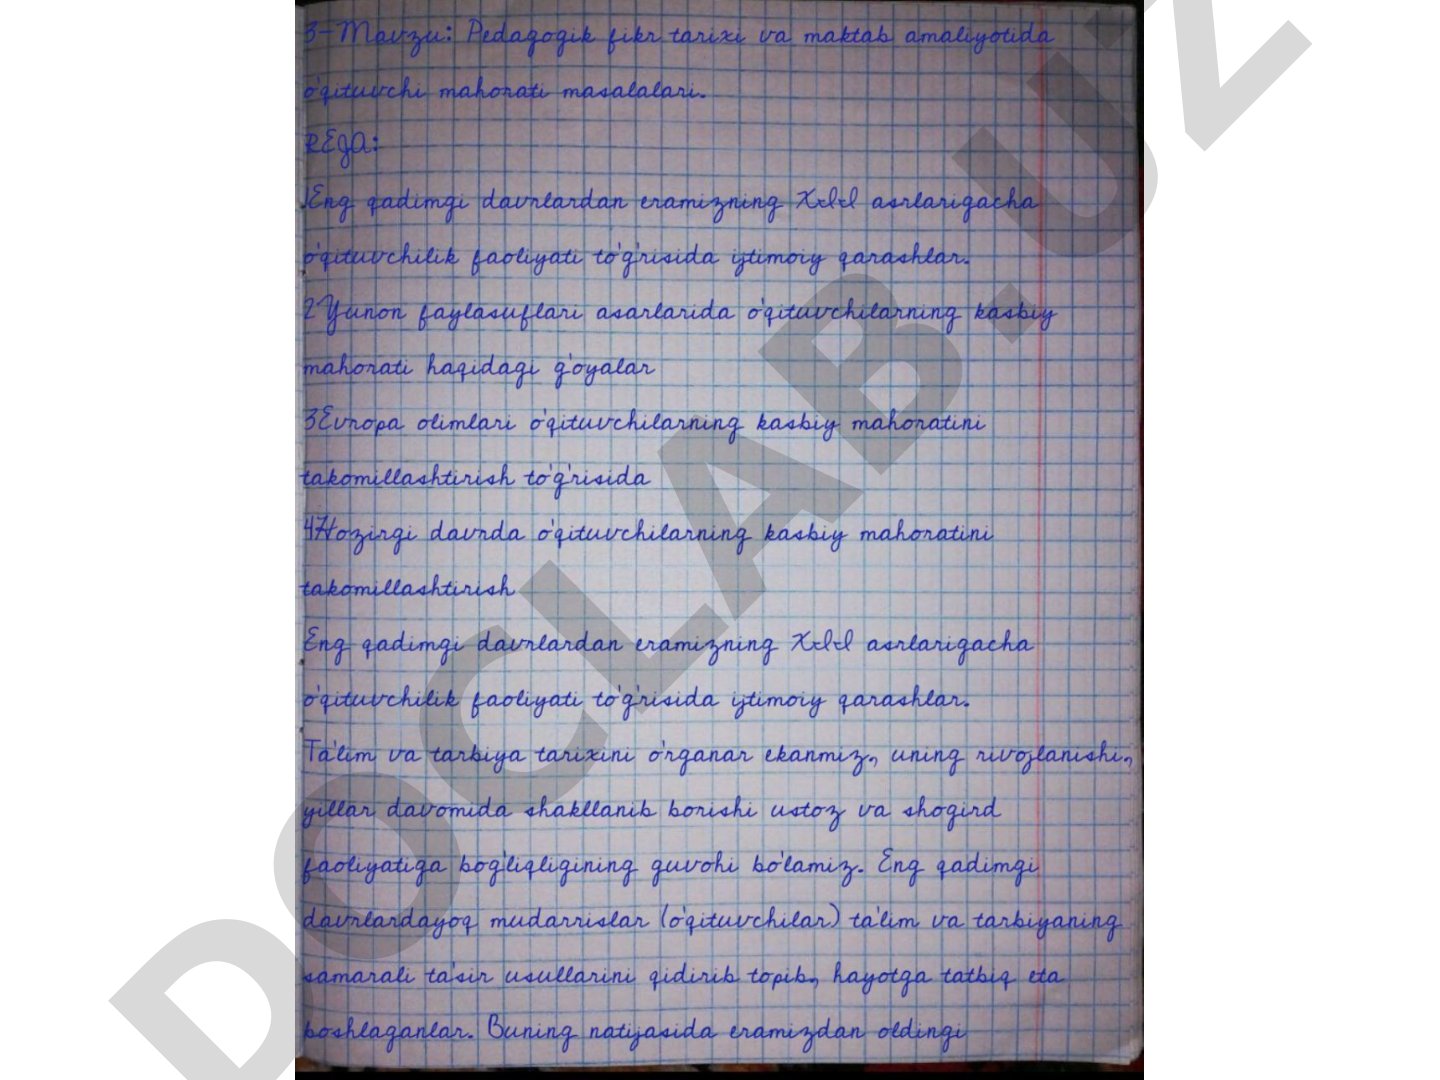 3-Mavzu: Pedagogik fikr tarixi va maktab amaliyotida
o'qituvchi mahorati masalalari.
REJA:
1Eng qadimgi davrlardan eramizning XII asrlarigacha
o'qituvchilik faoliyati to'g'risida ijtimoiy qarashlar.
2Yunon faylasuflari asarlarida o'qituvchilarning kasbiy
mahorati haqidagi g'oyalar
3Evropa olimlari o'qituvchilarning kasbiy mahoratini
takomillashtirish to'g'risida
4Hozirgi davrda o'qituvchilarning kasbiy mahoratini
takomillashtirish
Eng qadimgi davrlardan eramizning XII asrlarigacha
o'qituvchilik faoliyati to'g'risida ijtimoiy qarashlar.
Ta'lim va tarbiya tarixini o'rganar ekanmiz, uning rivojlanishi,
yillar davomida shakllanib borishi ustoz va shogird
faoliyatiga bog'liqligining guvohi bo'lamiz. Eng qadimgi
davrlardayoq mudarrislar (o'qituvchilar) ta'lim va tarbiyaning
samarali ta'sir usullarini qidirib topib, hayotga tatbiq eta
boshlaganlar. Buning natijasida eramizdan oldingi
DOCLAB.UZ